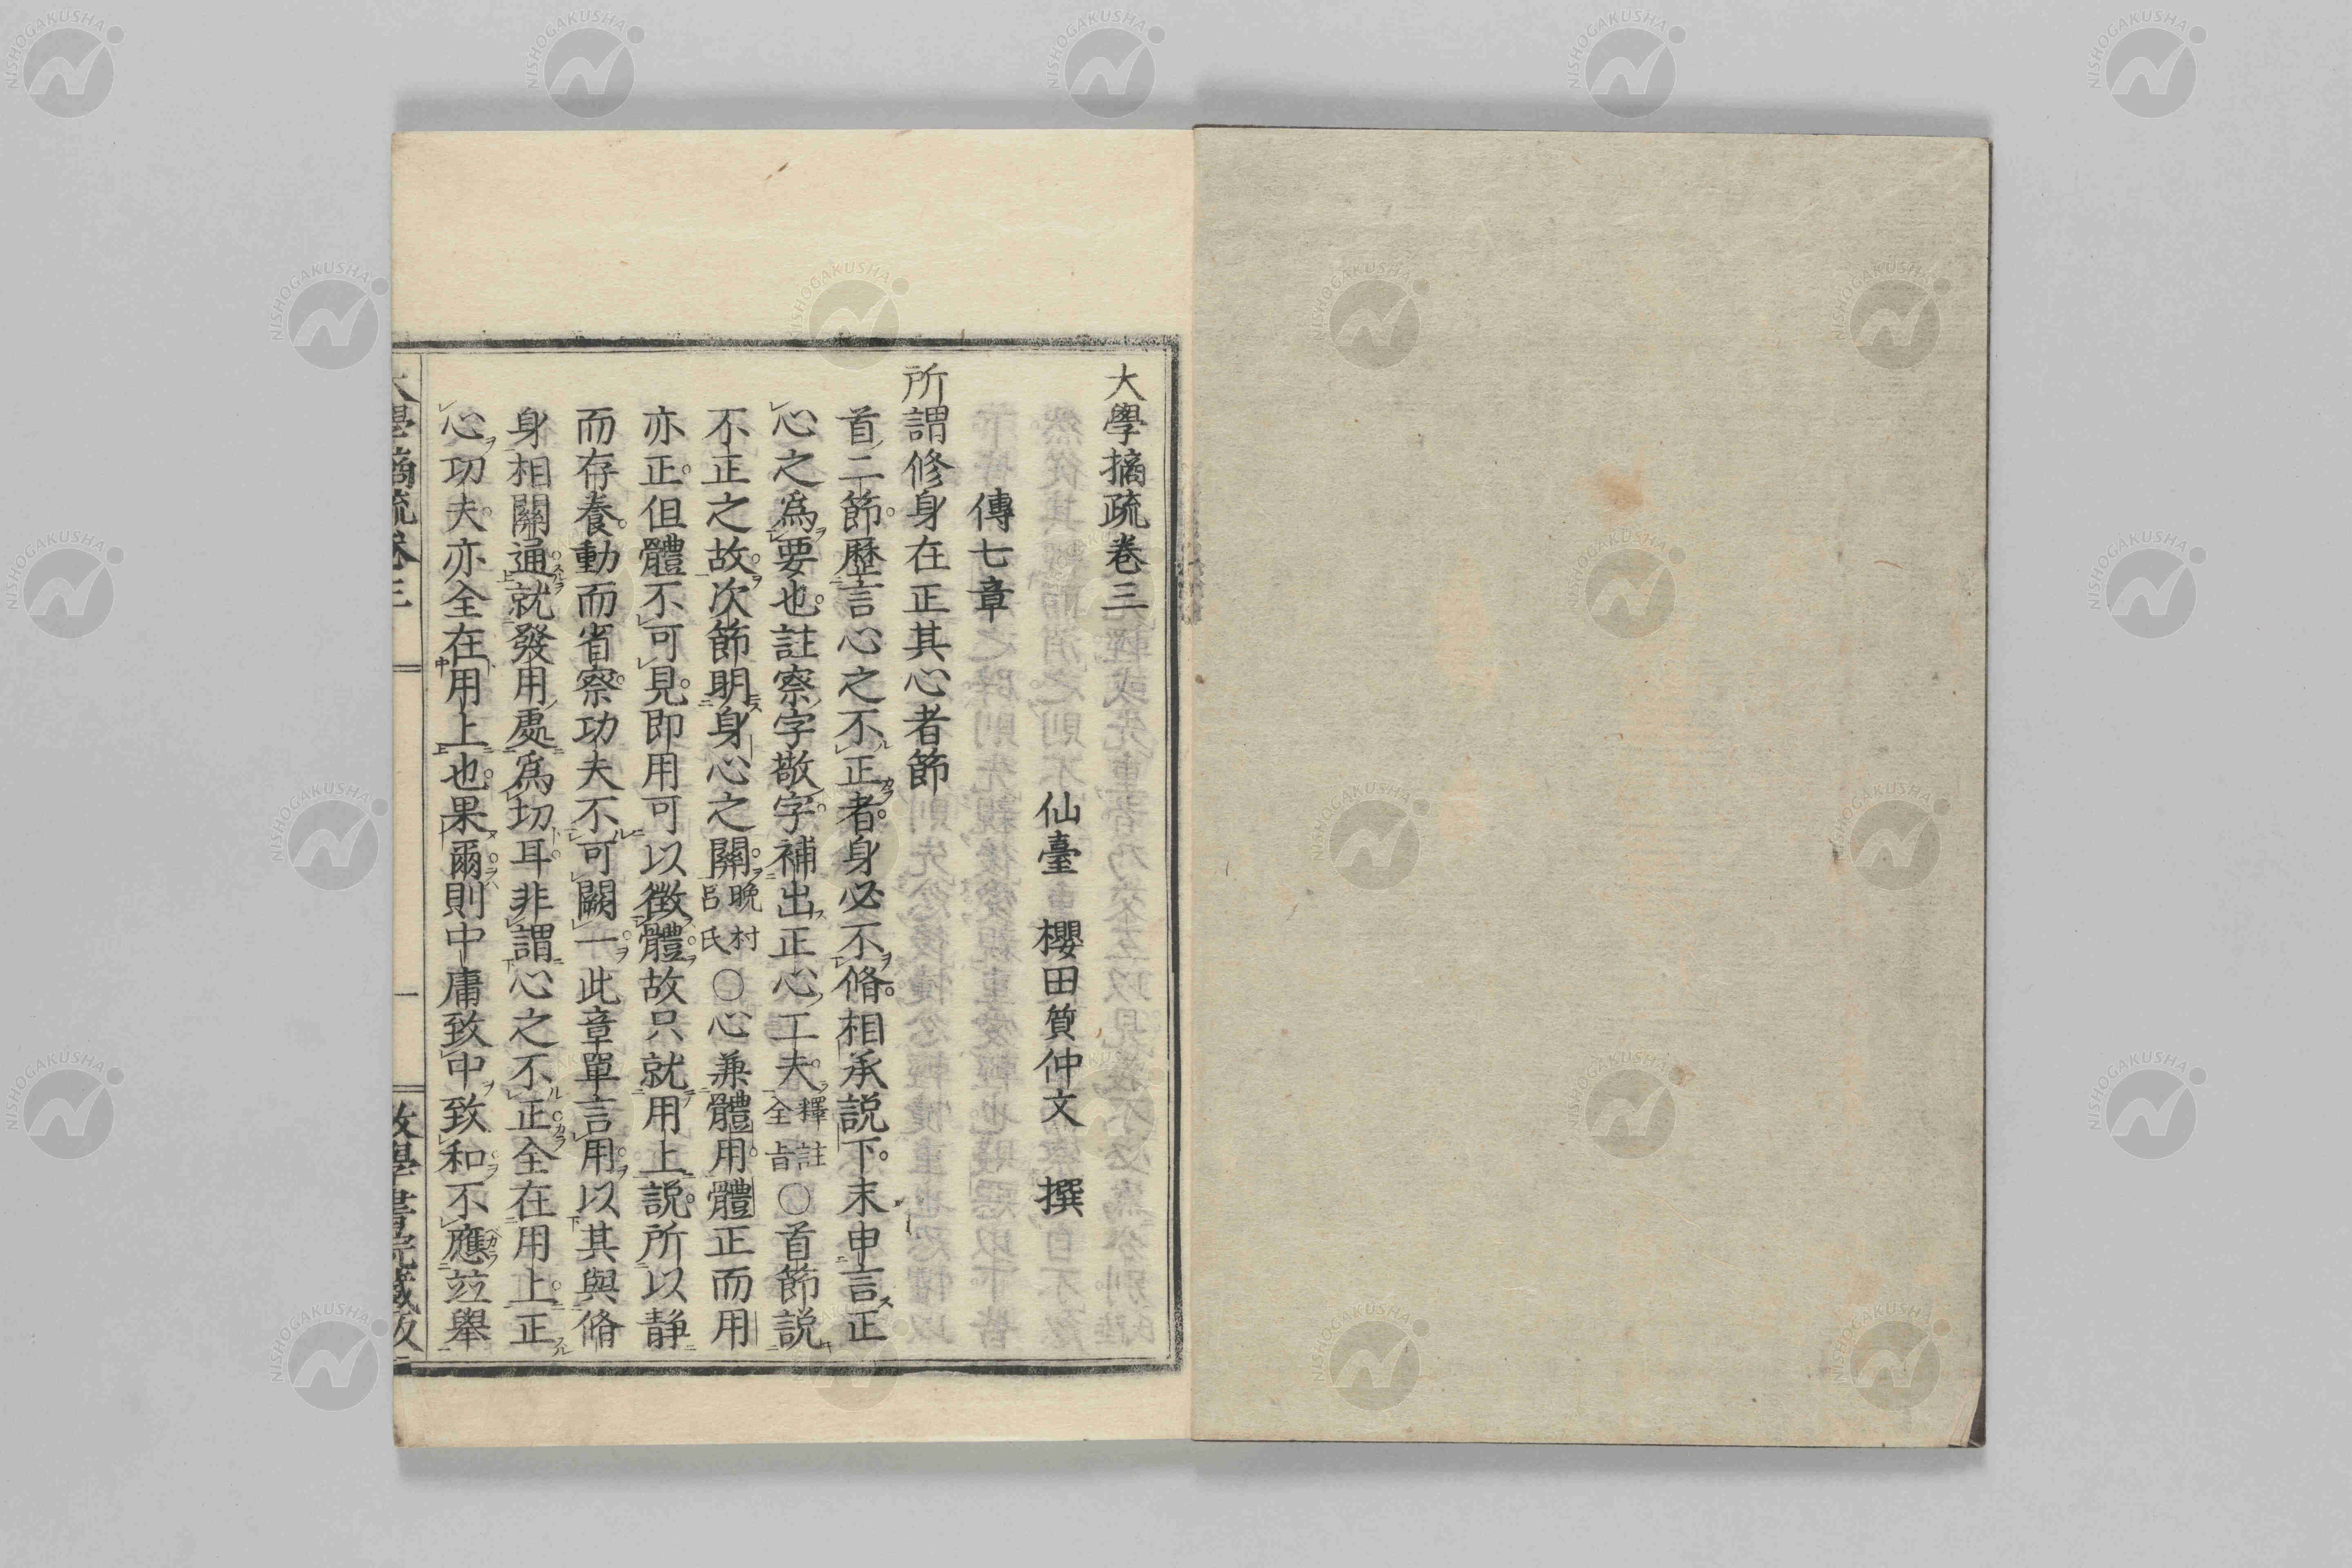 大學摘疏卷三
仙臺 櫻田質仲文 撰
傳七章
所謂修身在正其心者節
首二節歷言心之不正者身必不脩相承説下末申言正
心之爲要也註察字敬字補出正心工夫釋註全旨○首節説
不正之故次節明身心之關晩村呂氏○心兼體用體正而用
亦正但體不可見即用可以徵體故只就用上説所以静
而存養動而省察功夫不可闕一此章單言用以其與脩
身相關通就發用處爲切耳非謂心之不正全在用上正
心功夫亦全在用上也果爾則中庸致中致和不應竝舉
大學摘疏卷三 一
NISHOGAKUSHA